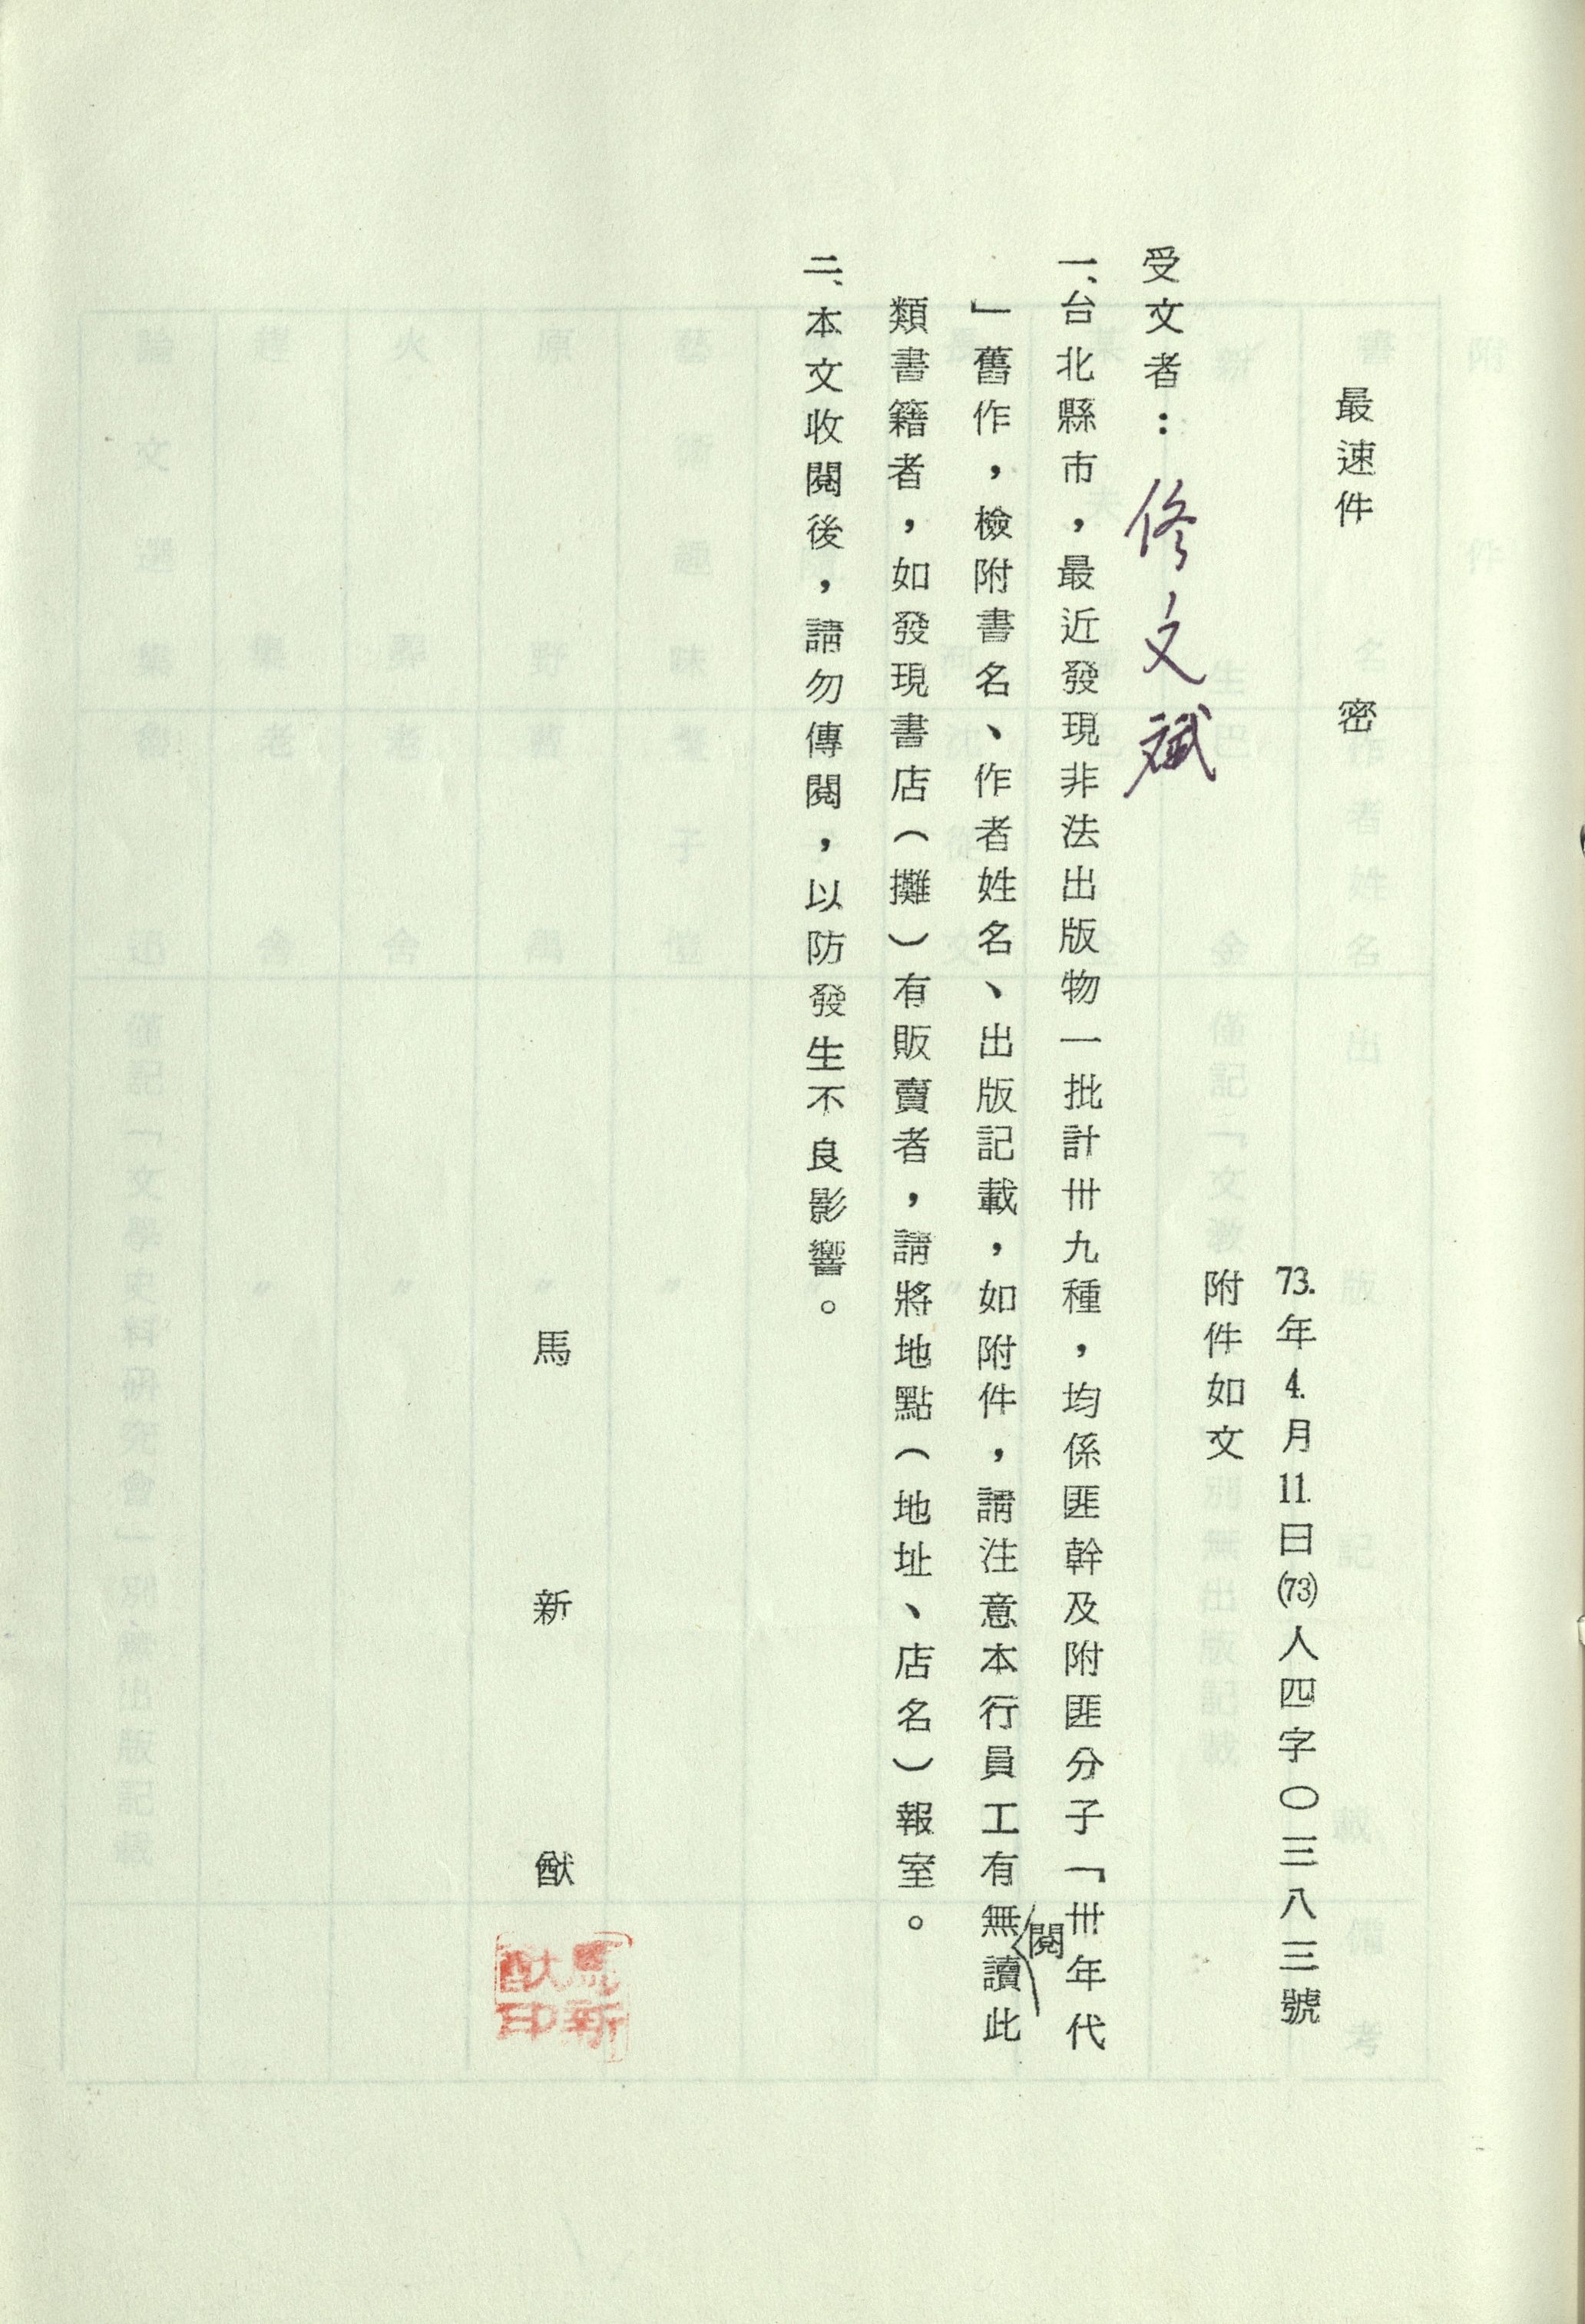 最速件　密
73.年4.月11.日(73)人四字〇三八三號
附件如文
受文者：修文斌
一、台北縣市，最近發現非法出版物一批計卅九種，均係匪幹及附匪分子「卅年代
」舊作，檢附書名、作者姓名、出版記載，如附件，請注意本行員工有無閱讀此
類書籍者，如發現書店（攤）有販賣者，請將地點（地址、店名）報室。
二、本文收閱後，請勿傳閱，以防發生不良影響。
馬新猷
馬新
猷印